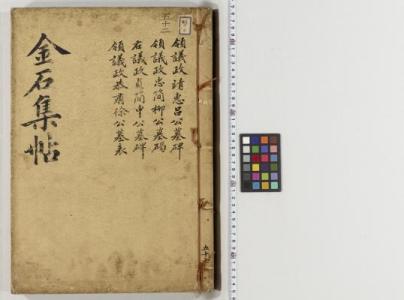 五十二
領議政靖惠呂公墓碑
領議政忠簡柳公墓碣
右議政貞簡申公墓碑
領議政恭肅徐公墓表
金石集帖